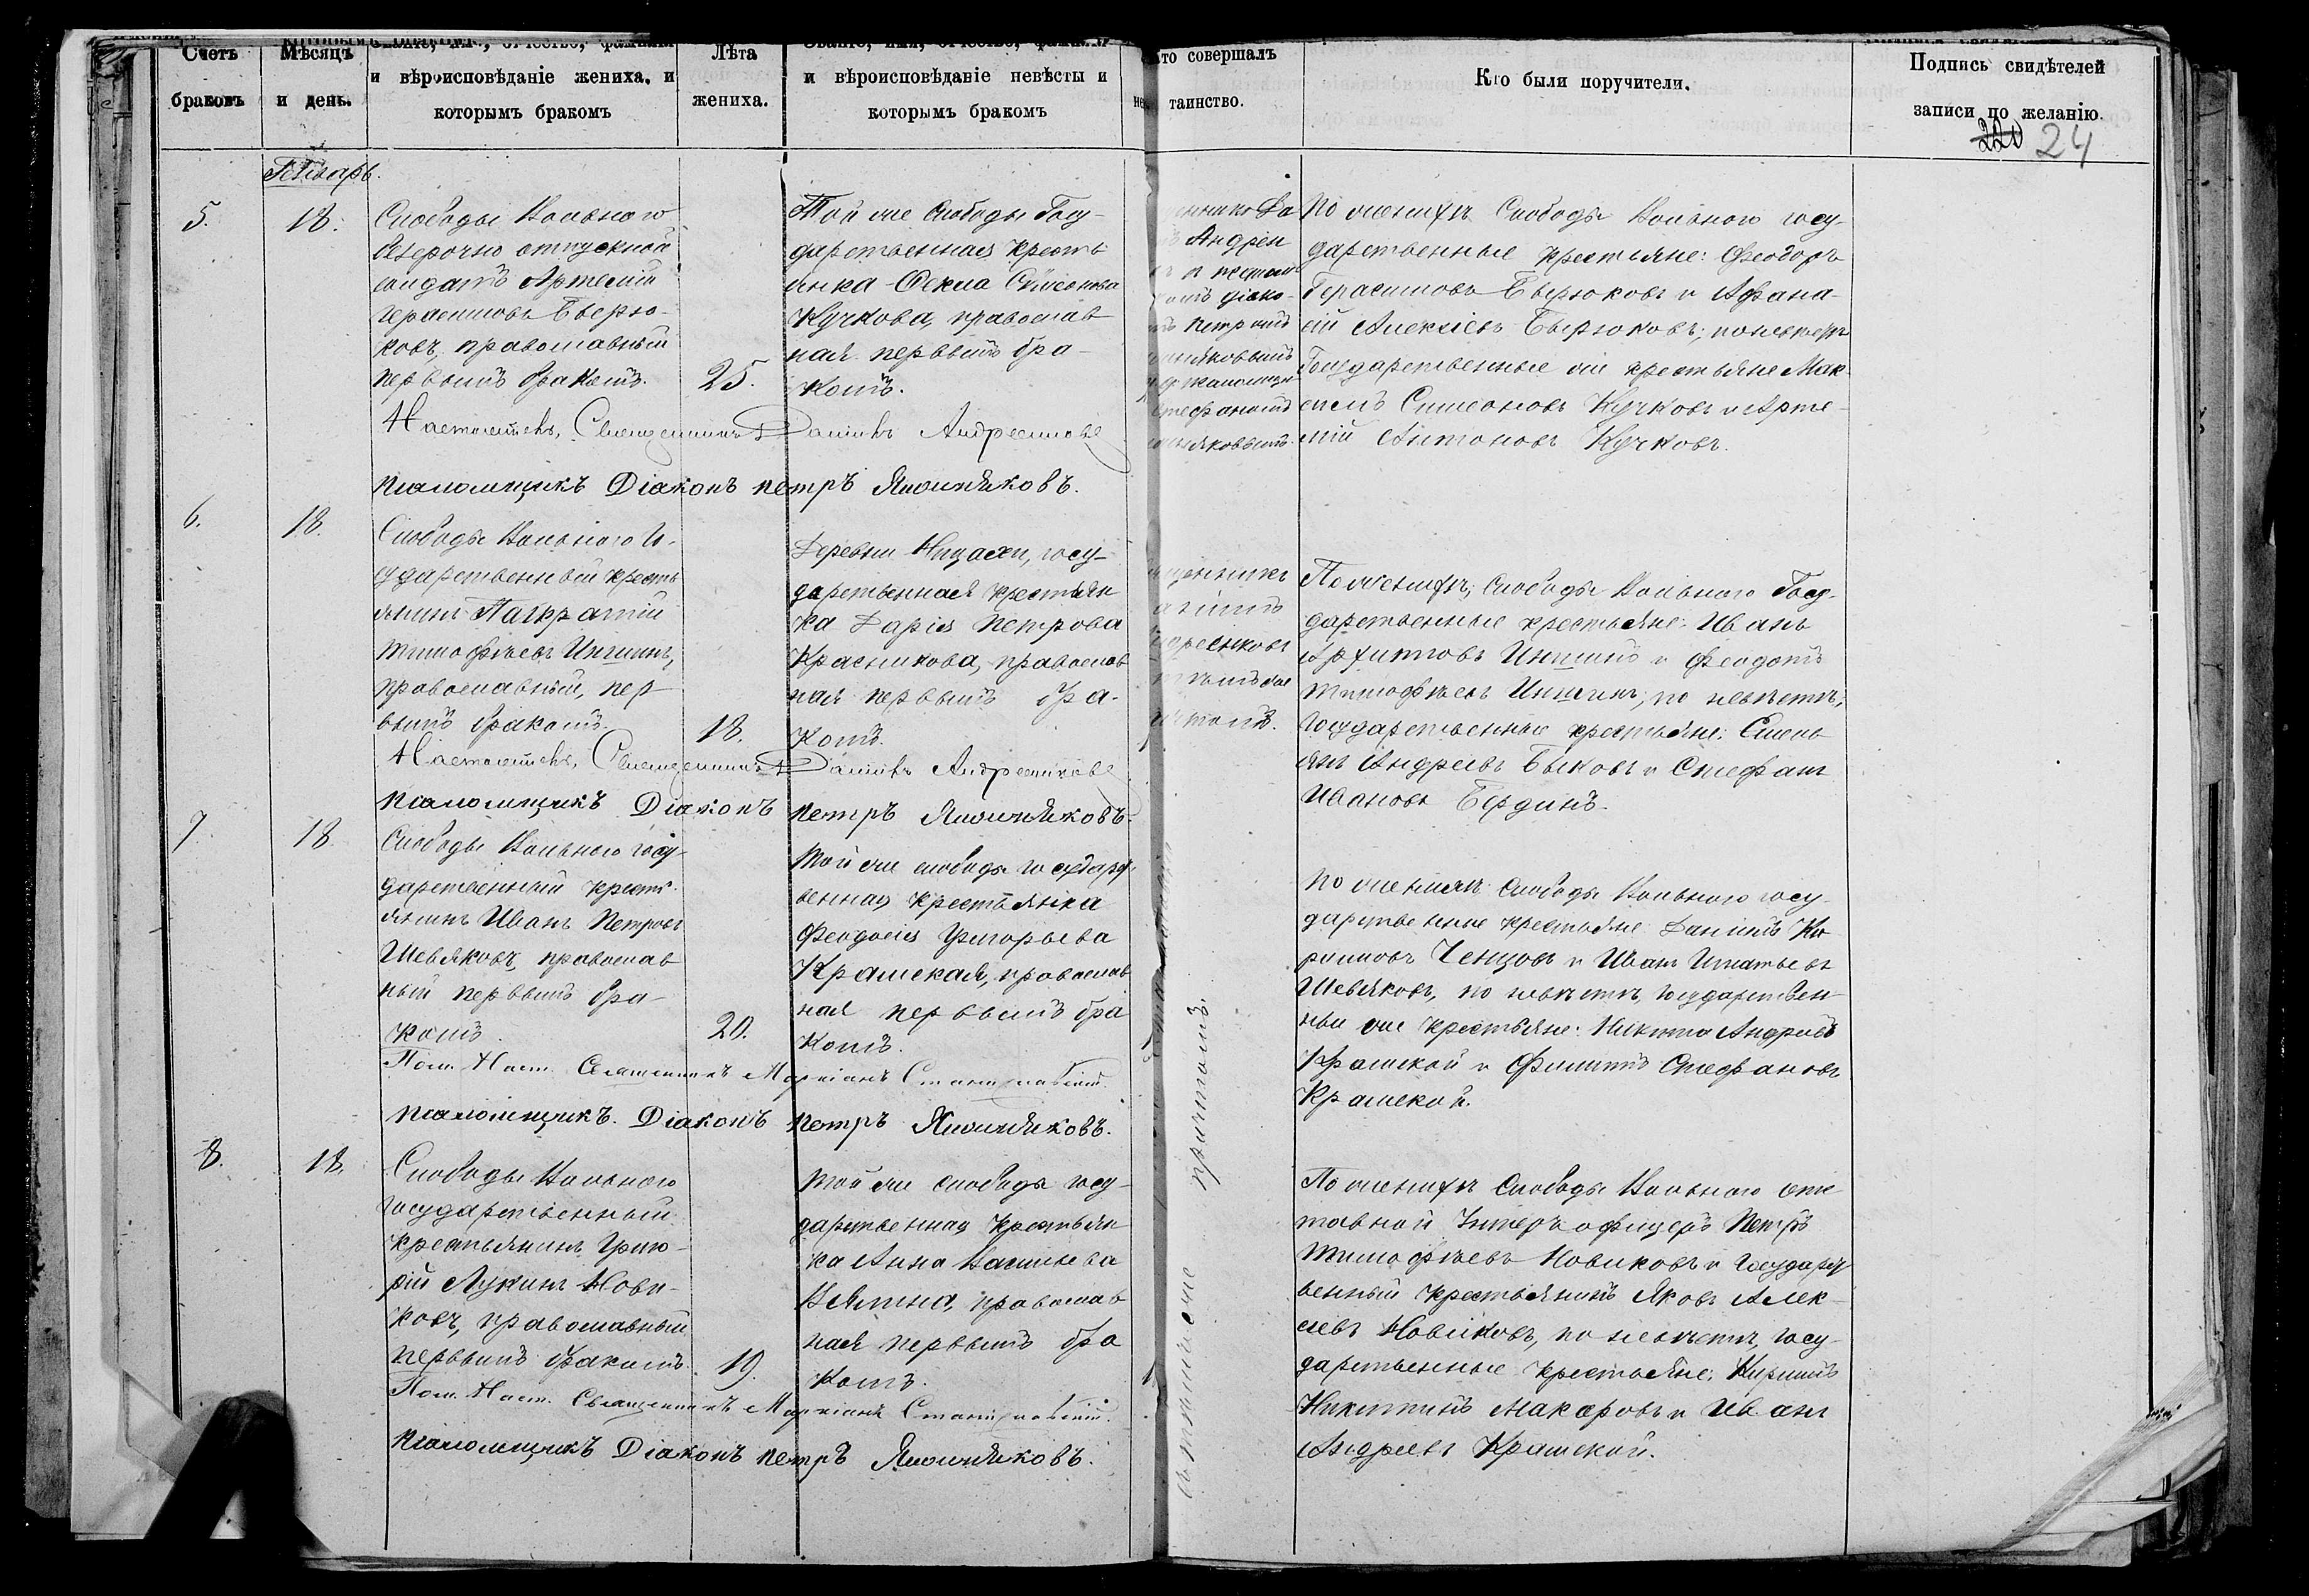 Счетъ
браковъ
Мѣсяцъ
и день.
и вѣроисповѣданіе жениха, и
которымъ бракомъ
Лѣта
жениха.
и вѣроисповѣданіе невѣсты и
которымъ бракомъ
то совершалъ
таинство.
Кто были поручители.
Подпись свидѣтелей
записи по желанію.
24
Генварь.
5.
18.
Слободы Вольного
безсрочно отпускной
солдатъ Артемій
Герасимовъ Бѣрю-
ковъ, православный
первымъ бракомъ.
25.
Той же слободы Госу-
дарственная кресть
янка Фекла Симеонова
Кучкова, православ
ная первымъ бра-
комъ.
Андрен
діако-
Петромъ
По женихѣ Слободы Вольного госу-
дарственные крестьяне: Феодоръ
Герасимовъ Бѣрюковъ и Афана-
сій Алексѣевъ Бѣрюковъ; по невѣстѣ
Государственные же крестьяне Мак-
симъ Симеоновъ Кучковъ и Арте-
мій Антоновъ Кучковъ.
Настоятель, Священникъ Даніилъ Андреенковъ
Псаломщикъ Діаконъ Петръ
6.
18.
Слободы Вольного Го-
сударственный кресть
янинъ Панкратій
Тимофѣевъ Иншинъ,
православный, пер-
вымъ бракомъ.
18.
Деревни Ницахи, госу-
дарственная крестьян
ка Дарія Петрова
Красникова, православ
ная первымъ бра-
комъ.
По женихѣ, Слободы Вольного Госу-
дарственные крестьяне: Иванъ
Архиповъ Иншинъ и Феодотъ
Тимофѣевъ Иншинъ; по невѣстѣ,
государственные крестьяне: Емель
янъ Андреевъ Быковъ и Стефанъ
Ивановъ Бердинъ.
Настоятель, Священникъ Даніилъ Андреенковъ
Псаломщикъ Діаконъ Петръ
7.
18.
Слободы Вольного госу-
дарственный кресть
янинъ Иванъ Петровъ
Шевяковъ, православ
ный первымъ бра-
комъ.
20.
Той же слободы государст
венная крестьянка
Феодосія Григорьева
Крамская, православ
ная первымъ бра
комъ.
По женихѣ Слободы Вольного госу-
дарственные крестьяне Даніилъ Ки-
рилловъ Ченцовъ и Иванъ Игнатьевъ
Шевяковъ, по невѣстѣ, государствен-
ные же крестьяне: Никита Андреевъ
Крамской и Филиппъ Стефановъ
Крамской.
Пом. Наст. Священникъ Маркіанъ
Псаломщикъ. Діаконъ Петръ
8.
18.
Слободы Вольного
государственный
крестьянинъ Григо-
рій Лукинъ Нови-
ковъ, православный
первымъ бракомъ.
19.
Той же слободы госу-
дарственная крестьян
ка Анна Васильева
Вялина, православ
ная первымъ бра
комъ.
причтомъ.
По женихѣ Слободы Вольного отс
тавной Унтеръ офицеръ Петръ
Тимофѣевъ Новиковъ и государст
венный крестьянинъ Яковъ Алек-
сѣевъ Новиковъ, по невѣстѣ, госу-
дарственные крестьяне: Кириллъ
Никитинъ Макаровъ и Иванъ
Андреевъ Крамской.
Пом. Наст. Священникъ Маркіанъ
Псаломщикъ Діаконъ Петръ